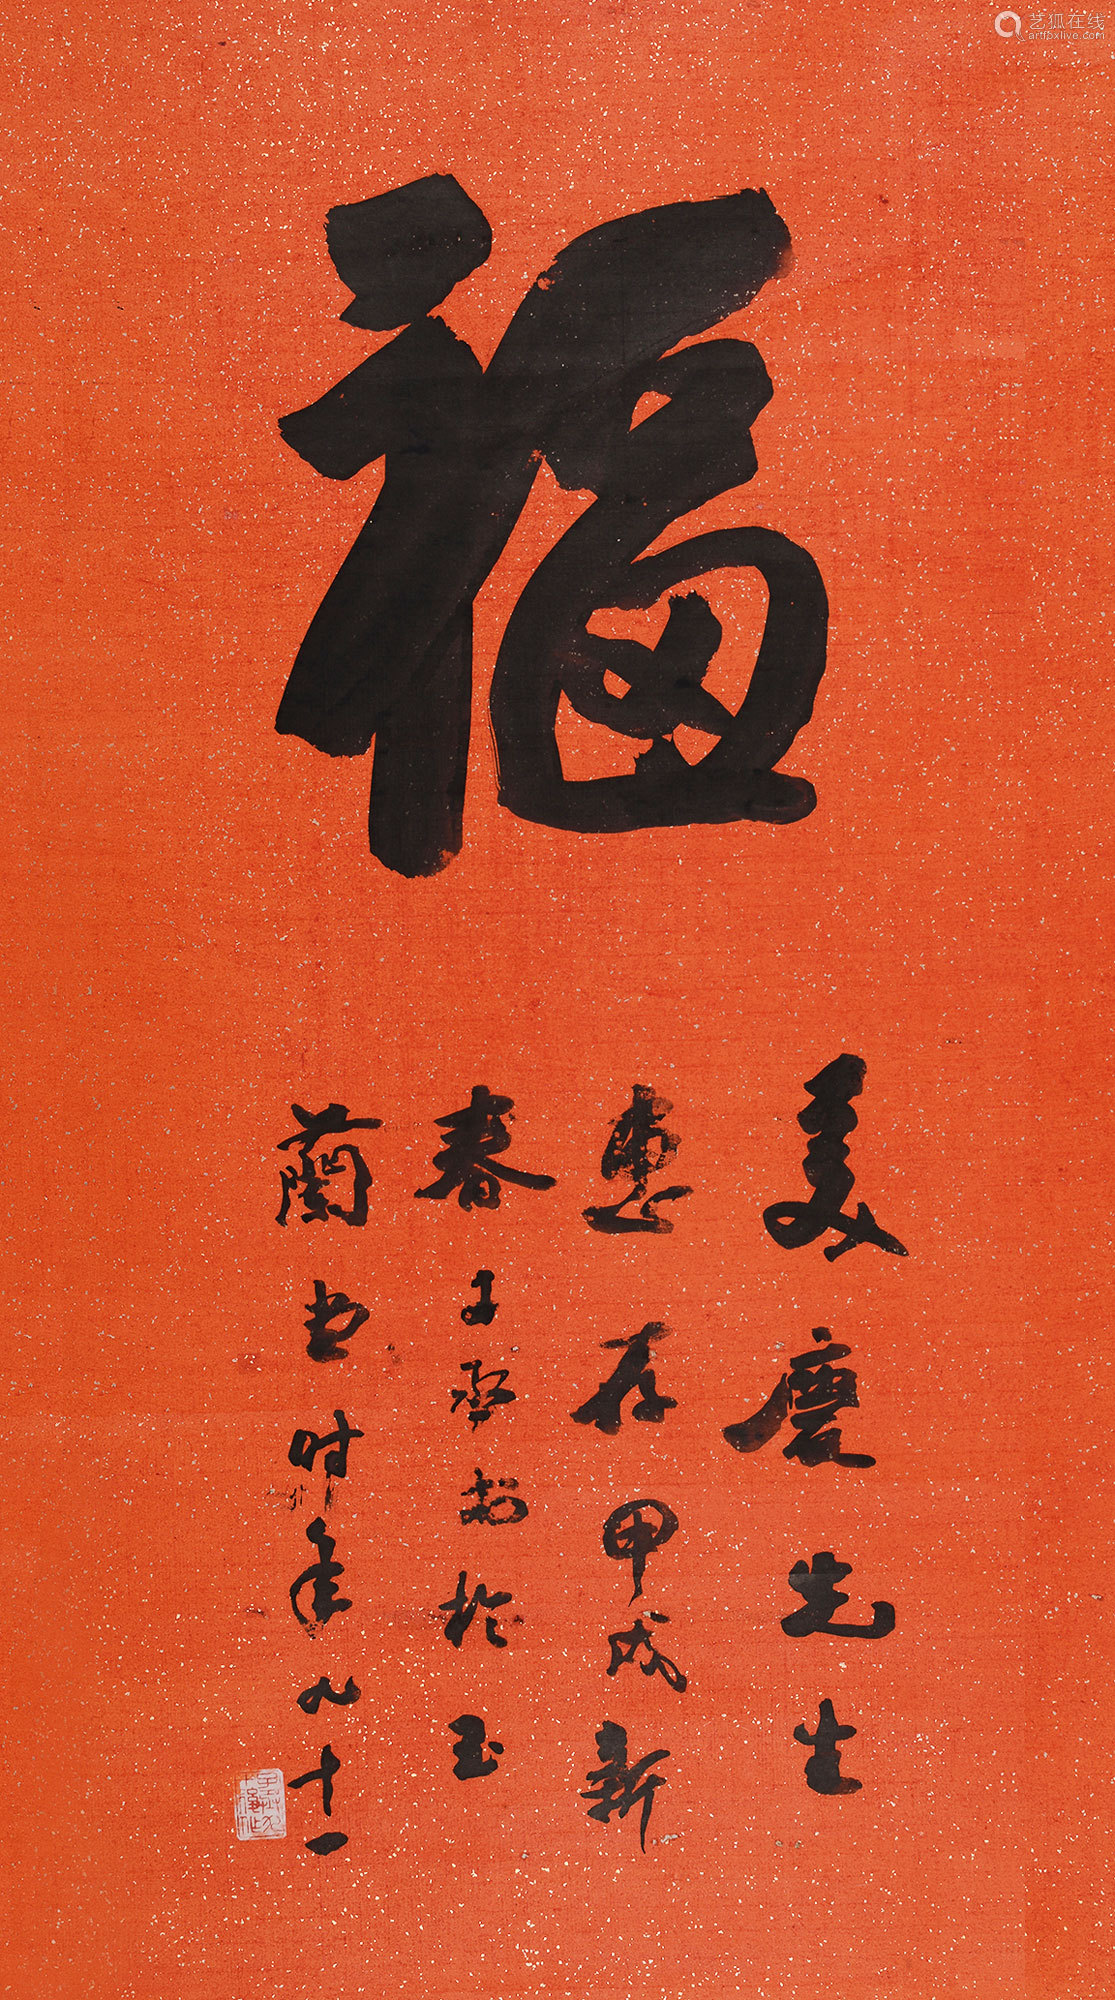 艺狐在线
artfoxlive.com
福
美慶先生
惠存甲戌新
春子丞於玉
蘭时年九十一